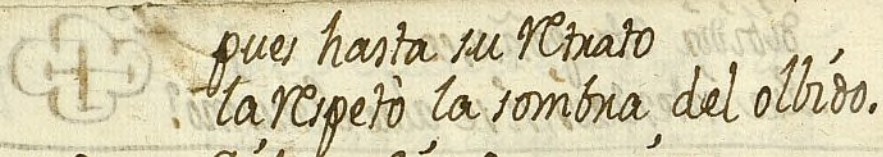 pues hasta su retrato
la respetò la sombra del olbido.